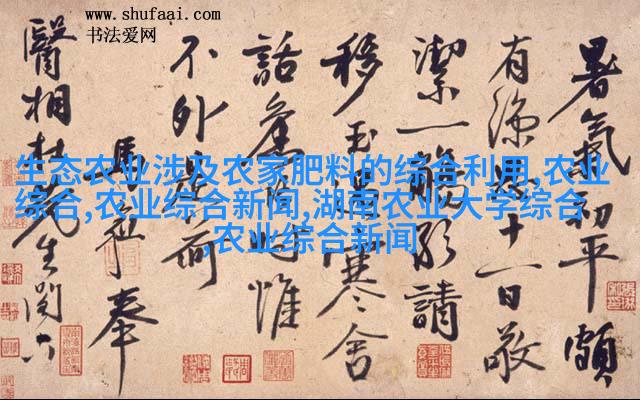 www.shufaai.com
书法爱网
生态农业涉及农家肥料的综合利用,农业
综合,农业综合新闻,湖南农业大学综合
,农业综合新闻
暑氣初平頗
有涼十一日敬
潔一觴請
移玉寒舍
話舊惟
不外荷
奉
醫相杜生閣下